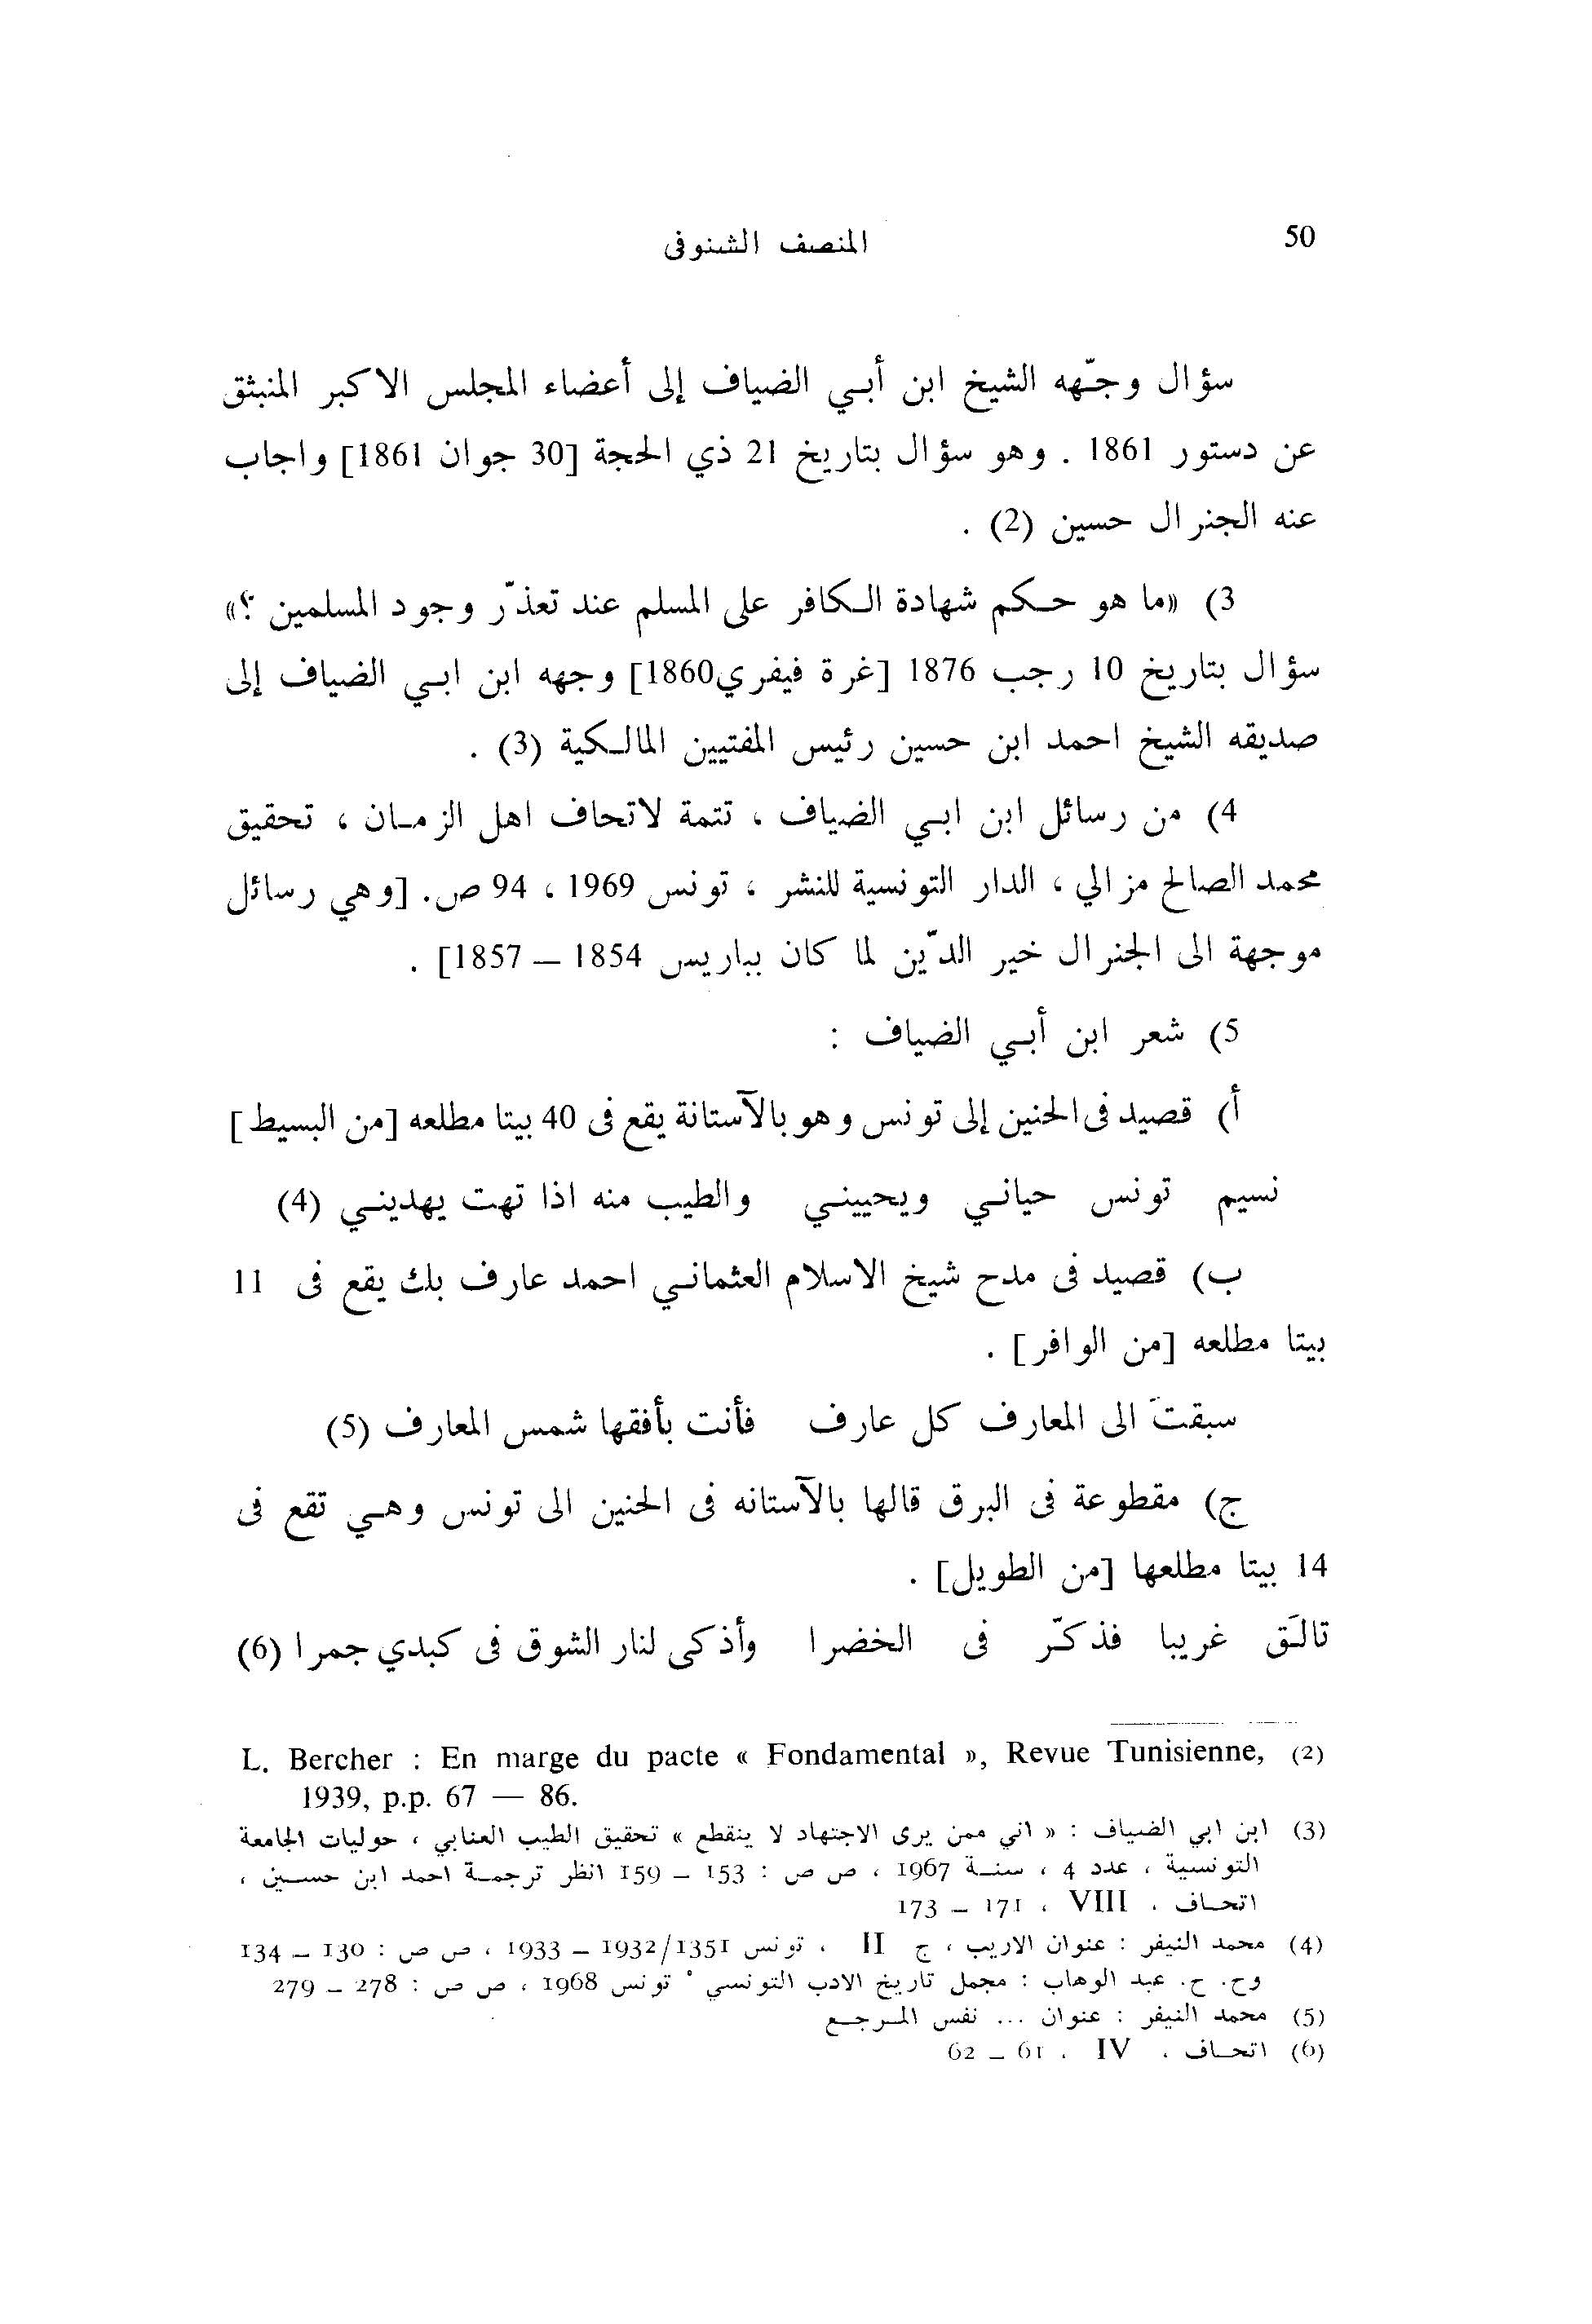 50
المنصف الشنوفى
سؤال وجّهه الشيخ ابن أبي الضياف إلى أعضاء المجلس الاكبر المنبثق
عن دستور 1861 . وهو سؤال بتاريخ 21 ذي الحجة [30 جوان 1861] واجاب
عنه الجنرال حسين (2) .
3) «ما هو حكم شهادة الكافر على المسلم عند تعذّر وجود المسلمين ؟»
سؤال بتاريخ 10 رجب 1876 [غرة فيفري1860] وجهه ابن ابي الضياف إلى
صديقه الشيخ احمد ابن حسين رئيس المفتيين المالكية (3) .
4) من رسائل ابن ابي الضياف ، تتمة لاتحاف اهل الزمان ، تحقيق
محمد الصالح مزالي ، الدار التونسية للنشر ، تونس 1969 ، 94 ص. [وهي رسائل
موجهة الى الجنرال خير الدّين لما كان بباريس 1854 – 1857] .
5) شعر ابن أبي الضياف :
أ) قصيد فى الحنين إلى تونس وهو بالآستانة يقع فى 40 بيتا مطلعه [من البسيط]
نسيم تونس حياني ويحييني والطيب منه اذا تهت يهديني (4)
ب) قصيد فى مدح شيخ الاسلام العثماني احمد عارف بك يقع فى 11
بيتا مطلعه [من الوافر] .
سبقتَ الى المعارف كل عارف فأنت بأفقها شمس المعارف (5)
ج) مقطوعة فى البرق قالها بالآستانه فى الحنين الى تونس وهي تقع فى
14 بيتا مطلعها [من الطويل] .
تالَق غريبا فذكّر فى الخضرا وأذكى لنار الشوق فى كبدي جمرا (6)
(2) L. Bercher : En marge du pacte « Fondamental », Revue Tunisienne,
1939, p.p. 67 — 86.
(3) ابن ابي الضياف : « اني ممن يرى الاجتهاد لا ينقطع » تحقيق الطيب العنابي ، حوليات الجامعة
التونسية ، عدد 4 ، سنة 1967 ، ص ص : 153 – 159 انظر ترجمة احمد ابن حسين ،
اتحاف ، VIII ، 171 – 173
(4) محمد النيفر : عنوان الاريب ، ج II ، تونس 1351/1932 – 1933 ، ص ص : 130 – 134
وح. ح. عبد الوهاب : مجمل تاريخ الادب التونسي ° تونس 1968 ، ص ص : 278 – 279
(5) محمد النيفر : عنوان ... نفس المرجع
(6) اتحاف ، IV ، 61 – 62